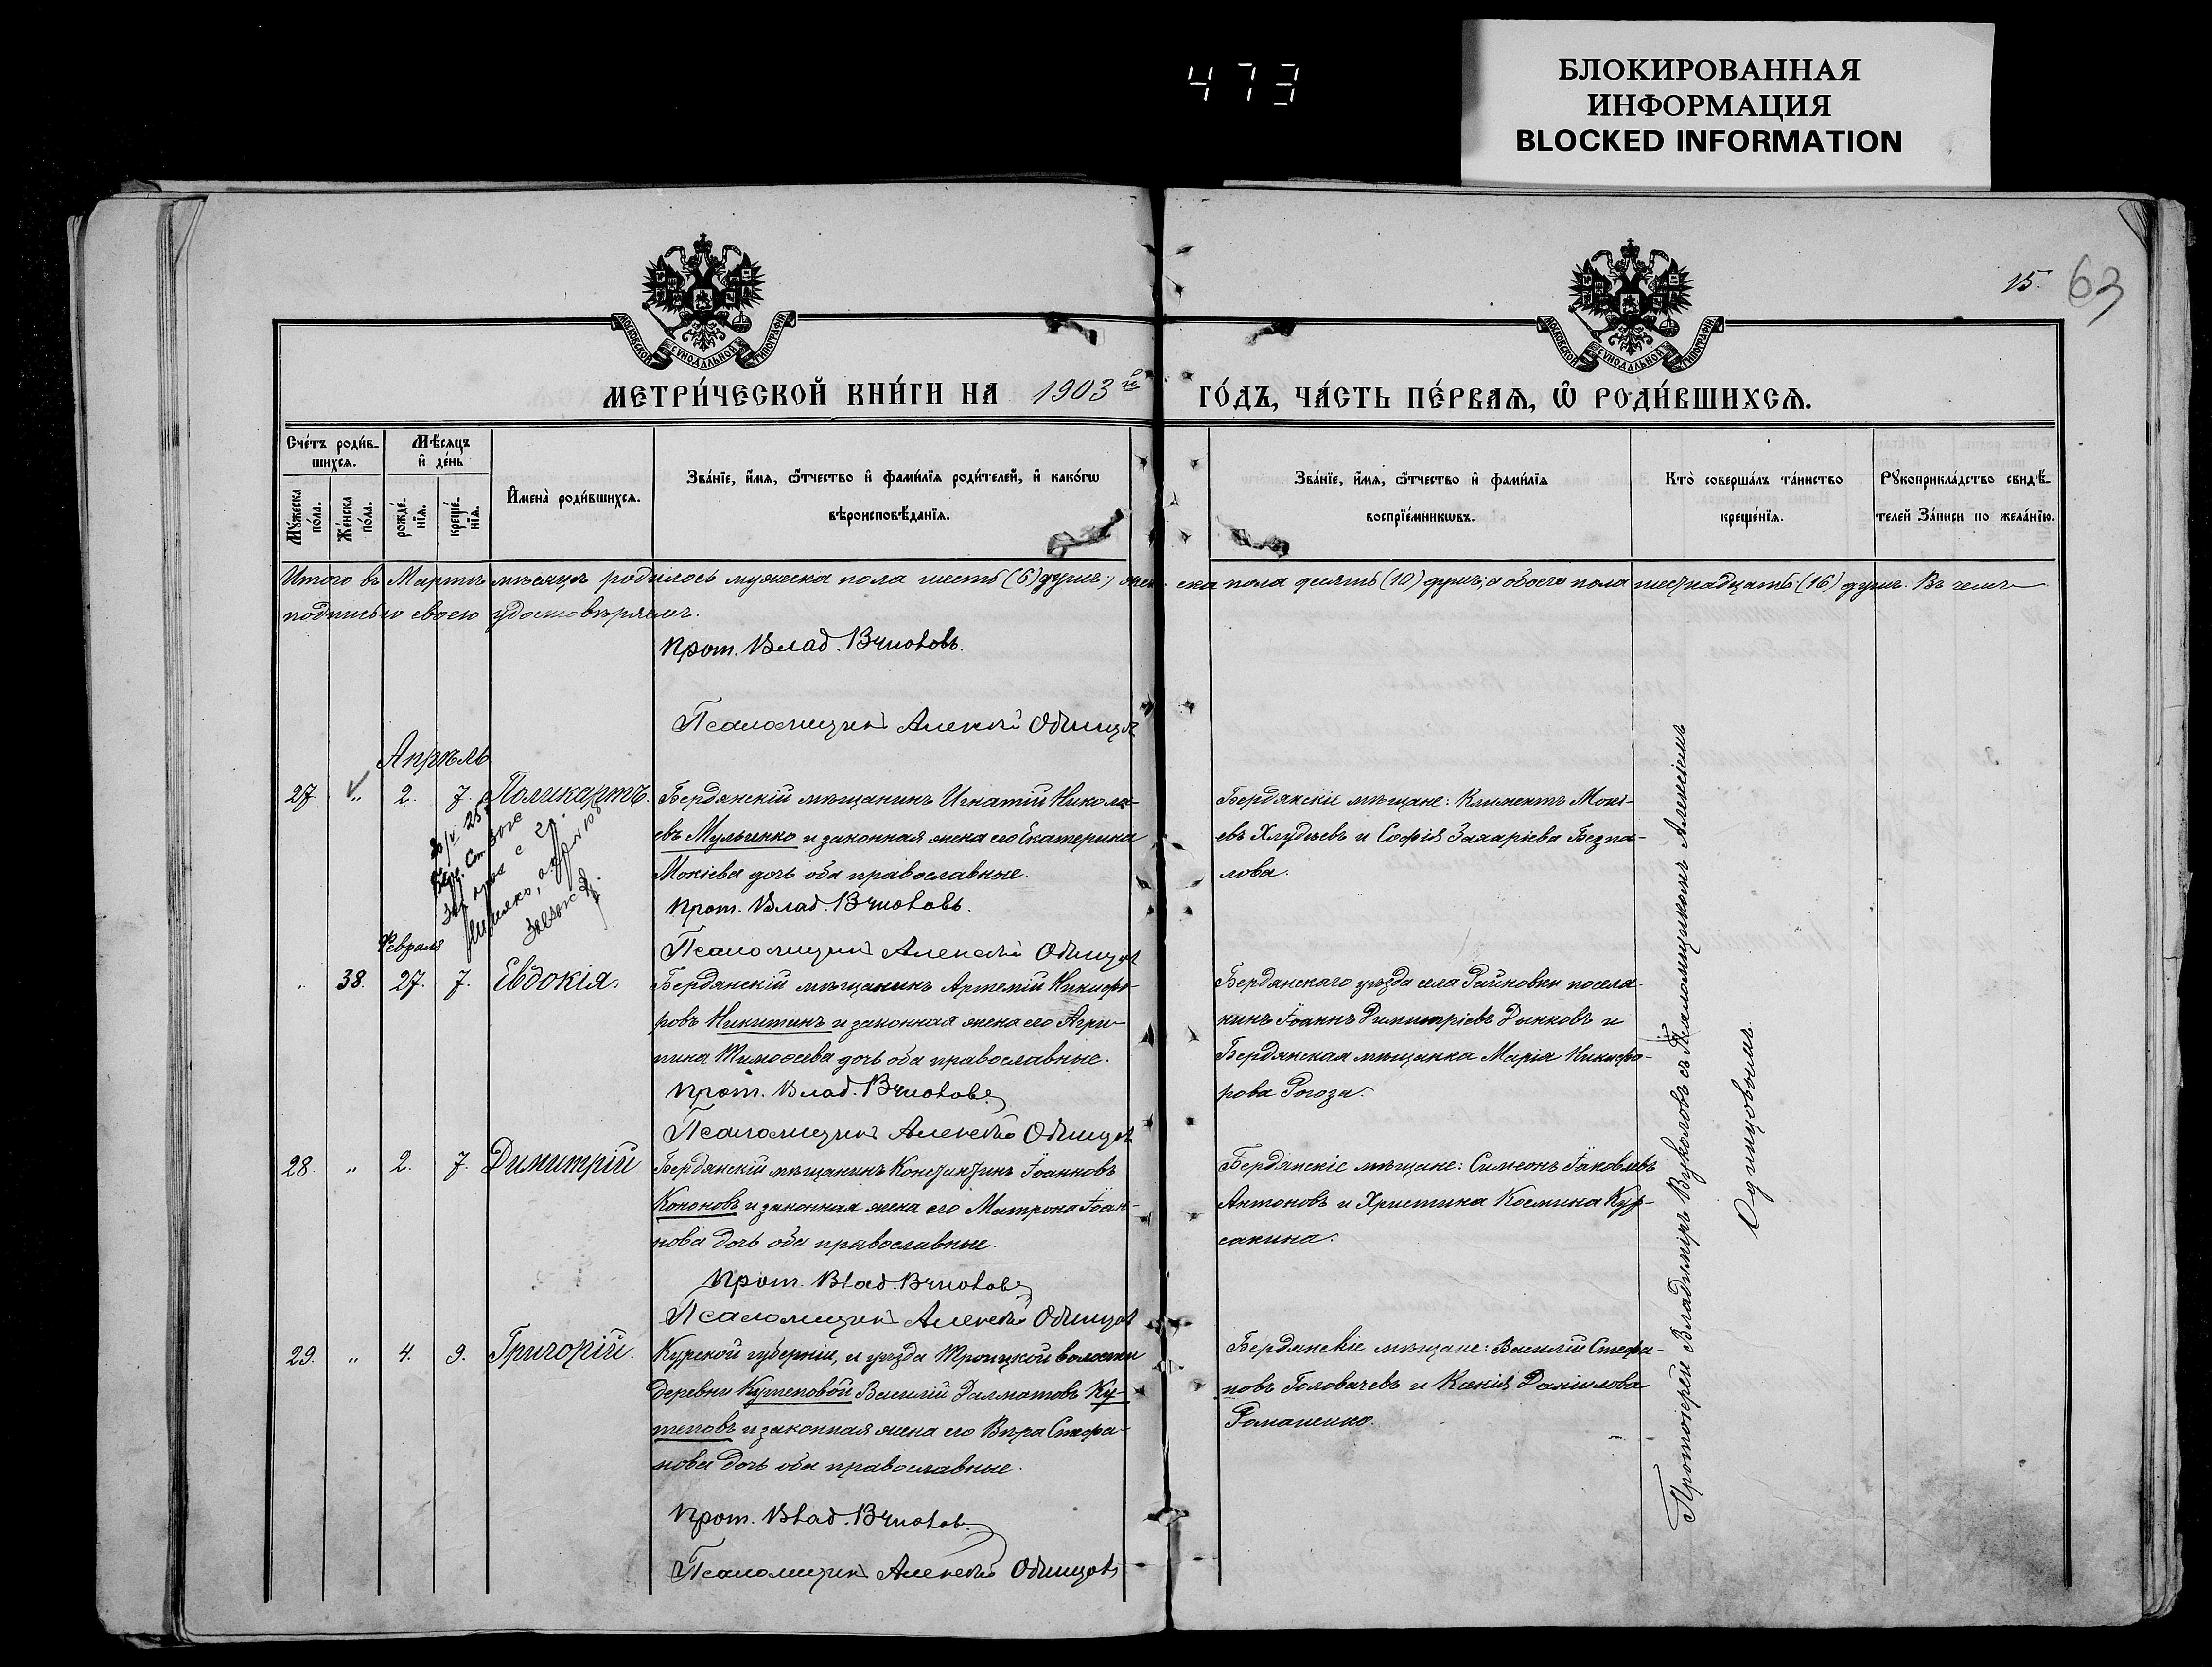 473
БЛОКИРОВАННАЯ
ИНФОРМАЦИЯ
BLOCKED INFORMATION
15. 63
МОСКОВСКОЙ СѴНОДАЛЬНОЙ ТИПОГРАФІИ
МОСКОВСКОЙ СѴНОДАЛЬНОЙ ТИПОГРАФІИ
МЕТРИ́ЧЕСКОЙ КНИ́ГИ НА 1903 й ГО́ДЪ, ЧА́СТЬ ПЕ́РВАѦ, Ѡ҆ РОДИ́ВШИХСѦ.
Сче́тъ роди́в-
шихсѧ.
Мѣ́сѧцъ
и҆ де́нь
Мꙋ́жеска
по́ла.
Же́нска
по́ла.
рожде́-
нїѧ.
креще́-
нїѧ.
И҆мена̀ роди́вшихсѧ.
Зва́нїе, и҆́мѧ, ѻ҆́тчество и҆ фами́лїѧ роди́телей, и҆ како́гѡ
вѣроисповѣ́данїѧ.
Зва́нїе, и҆́мѧ, ѻ҆́тчество и҆ фами́лїѧ
воспрїе́мникѡвъ.
Кто̀ соверша́лъ та́инство
креще́нїѧ.
Рꙋкоприкла́дство свидѣ́-
телей За́писи по жела́нїю.
Итого въ Мартѣ мѣсяцѣ родилось мужеска пола шесть (6) душъ, женска пола десять (10) душъ; а обоего пола шестнадцать (16) душъ. Въ чемъ
подписью своею удостовѣряемъ.
Прот. Влад. Вуколовъ.
Псаломщикъ Алексѣй Одинцов
Апрѣль
27. „ 2. 7. Поликарпъ.
Бердянскій мѣщанинъ Игнатій Никола-
евъ Мульченко и законная жена его Екатерина
Мокіева дочь оба православные.
Прот. Влад. Вуколовъ.
Псаломщикъ Алексѣй Одинцов
Бердянскіе мѣщане: Климентъ Мокі-
евъ Хлудѣевъ и Софія Захаріева Безпа-
лова.
Февраля
„ 38. 27. 7. Евдокія.
Бердянскій мѣщанинъ Артемій Никифо-
ровъ Никитинъ и законная жена его Агри-
пина Тимоѳеева дочь оба православные.
Прот. Влад. Вуколовъ
Псаломщикъ Алексѣй Одинцов
Бердянскаго уѣзда села Райновки поселя-
нинъ Іоаннъ Димитріевъ Дынковъ и
Бердянская мѣщанка Марія Никифо-
рова Рогоза.
28. „ 2. 7. Димитрій
Бердянскій мѣщанинъ Константинъ Іоанновъ
Кононовъ и законная жена его Матрона Іоан-
нова дочь оба православные.
Прот. Влад. Вуколовъ
Псаломщикъ Алексѣй Одинцов
Бердянскіе мѣщане: Симеонъ Іаковлевъ
Антоновъ и Христина Космина Кур-
сакина.
29. „ 4. 9. Григорій.
Курской губерніи, и уѣзда Троицкой волости
деревни Кутеповой Василій Далматовъ Ку-
теповъ и законная жена его Вѣра Стефа-
нова дочь оба православные.
Прот. Влад. Вуколов
Псаломщикъ Алексѣй Одинцовъ
Бердянскіе мѣщане: Василій Стефа-
новъ Головачевъ и Ксенія Даніилова
Романенко.
Протоіерей Владиміръ Вуколовъ съ Псаломщикомъ Алексіемъ
Одинцовымъ.